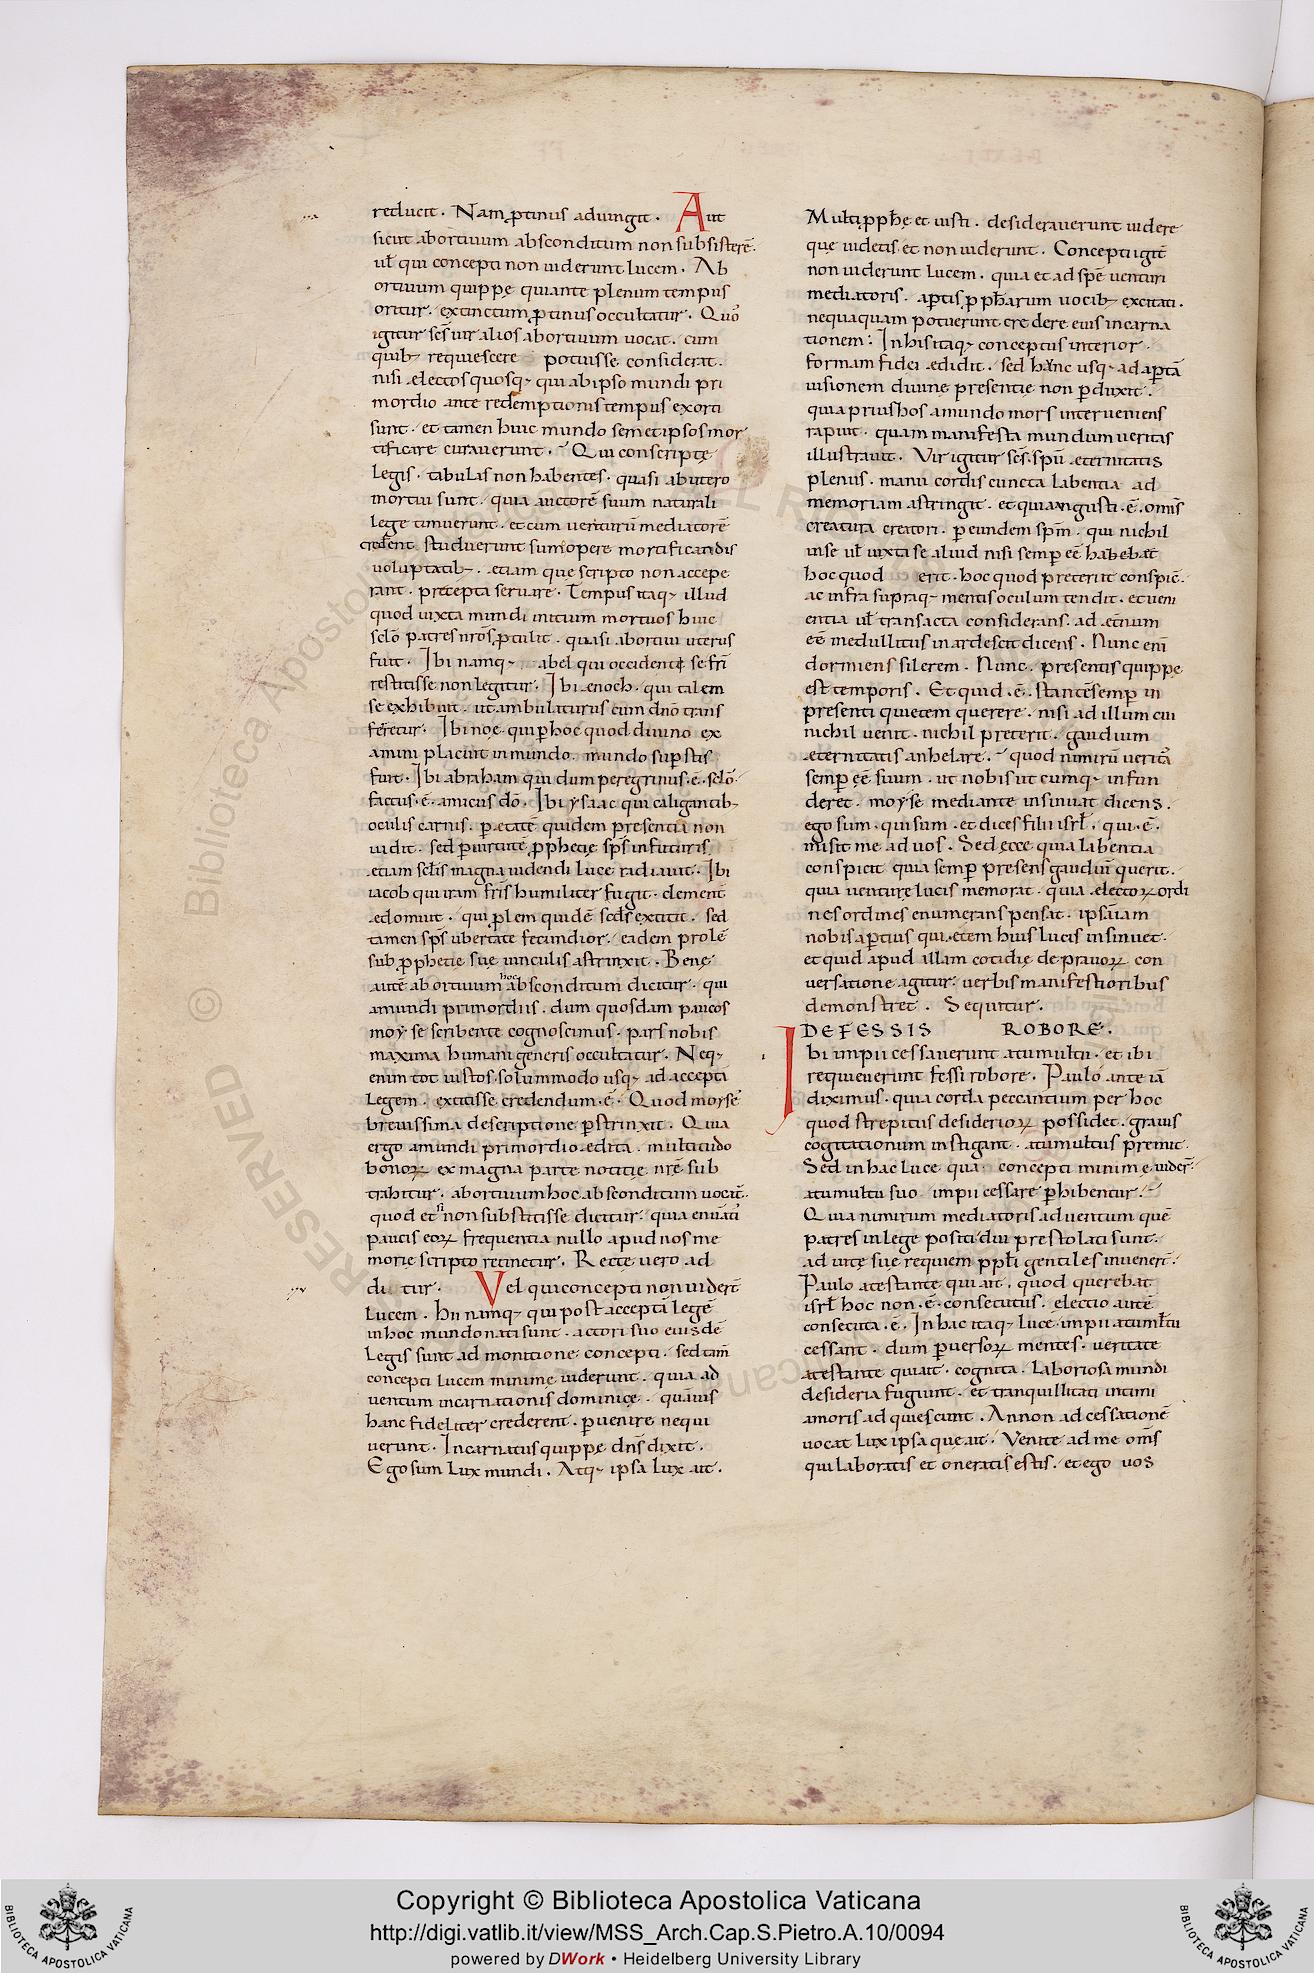 reducit. Nam ꝓtinus adiungit. Aut
sicut abortiuum absconditum non subsisterē.
ul̄ qui concepti non uiderunt lucem. Ab
ortiuum quippę quiante plenum tempus
oritur. extinctum ꝓtinus occultatur. Quos
igitur scs̄ uir alios abortiuum uocat. cum
quib; requiescere potuisse considerat.
nisi electos quosq; qui ab ipso mundi pri
mordio ante redemptionis tempus exorti
sunt. et tamen huic mundo semetipsos mor
tificare curauerunt. Qui conscriptę
legis. tabulas non habentes. quasi abutero
mortui sunt. quia auctorē suum naturali
lege timuerunt. et cum uenturū mediatorē
crederent studuerunt summopere mortificandis
uoluptatib;. etiam que scripto non accepe
rant. precepta seruare. Tempus itaq; illud
quod iuxta mundi initium mortuos huic
sclō patres nrōs ꝓtulit. quasi abortiui uterus
fuit. Ibi namq; abel qui occidenti se frī
restitisse non legitur. Ibi enoch. qui talem
se exhibuit. ut ambulaturus cum dnō trans
ferretur. Ibi noę. qui ꝑ hoc quod diuino ex
amini placuit in mundo. mundo suꝑstis
fuit. Ibi abraham qui dum peregrinus. ē. sclō.
factus. ē. amicus dō. Ibi ysaac qui caligantib;
oculis carnis. ꝑ etatē quidem presentia non
uidit. sed ꝑ uirtutē ꝓphetię sps̄ in futuris
etiam scl̄is magna uidendi luce radiauit. Ibi
iacob qui iram frīs humiliter fugit. clementer
edomuit. qui ꝓlem quidē secunds extitit. sed
tamen sps̄ ubertate fecundior. eadem prolē
sub ꝓphetie suę uinculis astrinxit. Benę
autē abortiuum hoc absconditum dicitur. qui
amundi primordiis. dum quosdam paucos
moyse scribente cognoscimus. pars nobis
maxima humani generis occultatur. Neq;
enim tot iustos. solummodo usq; ad acceptā
legem. extitisse credendum. ē. Quod moyses
breuissima descriptione ꝑstrinxit. Quia
ergo amundi primordio edita. multitudo
bonoꝝ ex magna parte notitię nrē sub
trahitur. abortiuum hoc absconditum uocat̄.
quod et n̄ non substitisse dicitur. quia enumeratis
paucis eoꝝ frequentia nullo apud nos me
morię scripto retinetur. Recte uero ad
di tur. Vel qui concepti non uider̄t
lucem. Hii namq; qui post acceptā legē
in hoc mundo nati sunt. actori suo eiusdē
legis sunt ad monitione concepti. sed tam̄
concepti lucem minime uiderunt. quia ad
uentum incarnationis dominicę. quāuis
hanc fideliter crederent. ꝑuenire nequi
uerunt. Incarnatus quippe dnꝰ dixit.
Ego sum lux mundi. Atq; ipsa lux ait.
Multi ꝓphē et iusti. desiderauerunt uidere
que uidetis. et non uiderunt. Concepti igit̄
non uiderunt lucem. quia et ad spē uenturi
mediatoris. aꝑtis ꝓphetarum uocib; excitati.
nequaquam potuerunt cre dere eius incarna
tionem. In his itaq; conceptus interior.
formam fidei edidit. sed hanc usq; ad aꝑtā
uisionem diuinę presentię non ꝑduxit.
quia prius hos amundo mors interueniens
rapuit. quam manifesta mundum ueritas
illustrauit. Vir igitur scs̄. spū eternitatis
plenus. manu cordis cuncta labentia ad
memoriam astringit. et quia angusta. ē. omīs
creatura creatori. ꝑ eundem spm̄. qui nichil
in se ul̄ iuxta se aliud nisi semꝑ eē habebat
hoc quod erit. hoc quod preterit conspic̄.
ac infra supraq; mentis oculum tendit. et ueni
entia ul̄ transacta considerans. ad etn̄um
eē medullitus inardescit dicens. Nunc enī
dormiens silerem. Nunc. presentis quippę
est temporis. Et quid. ē. stantē semꝑ in
presenti quietem querere. nisi ad illum cui
nichil uenit. nichil preterit. gaudium
eternitatis anhelare. quod nimirū ueritas
semꝑ eē suum. ut nobis ut cumq; in fun
deret. moyse mediante insinuat dicens.
ego sum. qui sum. et dices filii isrl̄. qui. ē.
misit me ad uos. Sed ecce quia labentia
conspicit quia semꝑ presens gaudiū querit.
quia uenturę lucis memorat. quia electoꝝ ordi
nes ordines enumerans pensat. ipsā iam
nobis aꝑtius quietem huius lucis insinuet.
et quid apud illam cotidię de prauoꝝ con
uersatione agitur. uerbis manifestioribus
demonstret. Sequitur.
DEFESSIS ROBORE.
Ibi impii cessauerunt atumultu. et ibi
requieuerunt fessi robore. Paulo ante iā
diximus. quia corda peccantium per hoc
quod strepitus desiderioꝝ possidet. grauis
cogitationum instigant. atumultus premit.
Sed in hac luce qua concepti minime uider̄.
atumultu suo impii cessare ꝑhibentur.
Quia nimirum mediatoris aduentum quē
patres in lege positi diu prestolati sunt.
ad uitę suę requiem ppl̄i gentiles inuener̄t.
Paulo atestante qui ait. quod querebat
isrl̄ hoc non. ē. consecutus. electio autē
consecuta. ē. In hac itaq; lucē impii atumultu
cessant. dum ꝑuersoꝝ mentes. ueritate
atestante quiait. cognita. laboriosa mundi
desideria fugiunt. et tranquillitati intimi
amoris ad quiescunt. Annon ad cessationē
uocat lux ipsa que ait. Venite ad me omīs
qui laboratis et oneratis estis. et ego uos
Copyright © Biblioteca Apostolica Vaticana
http://digi.vatlib.it/view/MSS_Arch.Cap.S.Pietro.A.10/0094
powered by DWork • Heidelberg University Library